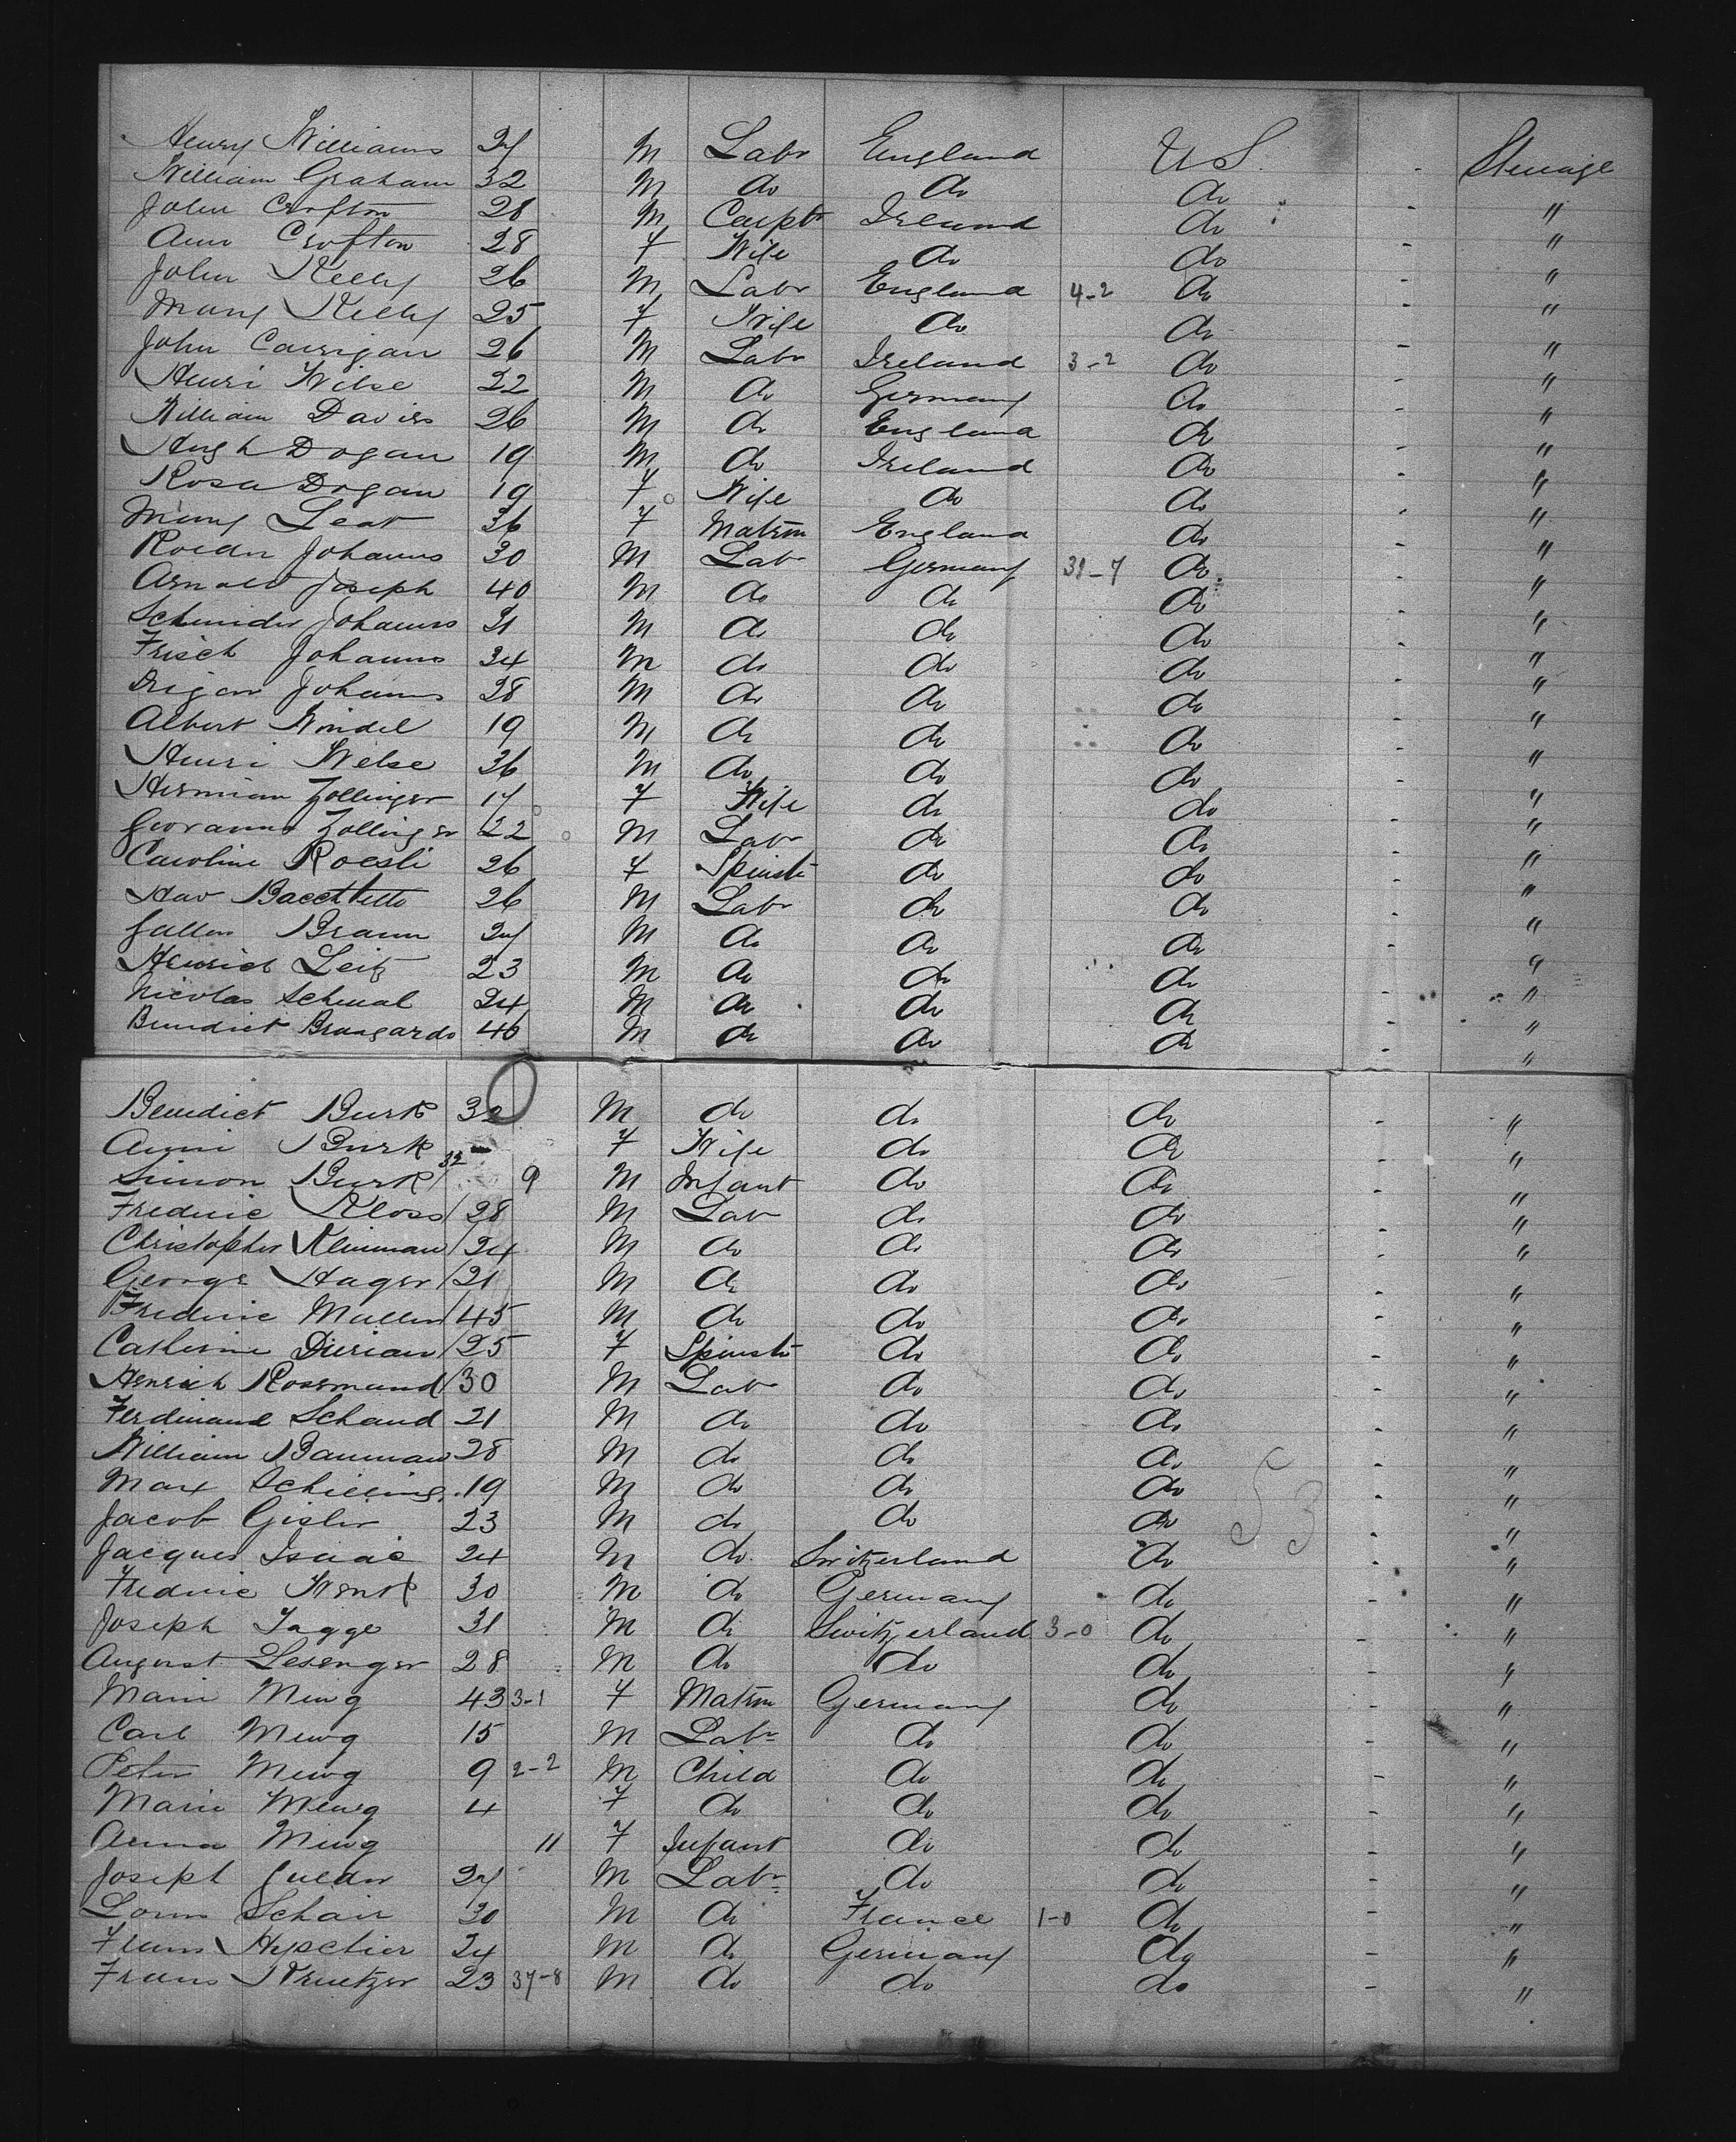 Henry Williams 24 M Labr England U S. - Steerage
William Graham 32 M do do do - "
John Crofton 28 M Carptr Ireland do - "
Ann Crofton 28 F Wife do do - "
John Kelly 26 M Labr England 4-2 do - "
Mary Kelly 25 F Wife do do - "
John Carrigan 26 M Labr Ireland 3-2 do - "
Henri Wilse 22 M do Germany do - "
William Davies 26 M do England do - "
Hugh Dogan 19 M do Ireland do - "
Rosa Dogan 19 F Wife do do - "
Mary Leat 36 F Matron England do - "
Johanns 30 M Labr Germany do - "
Arnold Joseph 40 M do do do - "
Schneider Johanns 31 M do do do - "
Frisch Johanns 24 M do do do - "
Johanns 28 M do do do - "
Albert Windel 19 M do do do - "
Henri Welse 36 M do do do - "
Hermian Zollinger 17 F Wife do do - "
Giovanni Zollinger 22 M Labr do do - "
Caroline Roesli 26 F Spinstr do do - "
26 M Labr do do - "
Braun 24 M do do do - "
Heinrich Leitz 23 M do do do - "
Nicolas Schmal 24 M do do do - "
Benedict Brangardo 46 M do do do - "
Benedict Burk 32 M do do do - "
Anni Burk 32 F Wife do do - "
Simon Burk 9 M Infant do do - "
Frederic Kloss 28 M Labr do do - "
Christopher Kleinman 24 M do do do - "
George Hager 21 M do do do - "
Frederic Muller 45 M do do do - "
Catherine Dierian 25 F Spinstr do do - "
Henrich Rosemund 30 M Labr do do - "
Ferdinand Schaud 21 M do do do - "
William Bauman 28 M do do do - "
Max Schilling 19 M do do do - "
Jacob Gisler 23 M do do do - "
Jacques Isaac 24 M do Switzerland do - "
Frederic Wenk 30 M do Germany do - "
Joseph Tagge 31 M do Switzerland 3-0 do - "
August Lesenger 28 M do do do - "
Marie Meng 43 3-1 F Matron Germany do - "
Carl Meng 15 M Labr do do - "
Peter Meng 9 2-2 M Child do do - "
Marie Meng 4 F do do do - "
Anna Meng 11 F Infant do do - "
Joseph 24 M Labr do do - "
Louis Schair 30 M do France 1-0 do - "
Frans 24 M do Germany do - "
Frans Kreutzer 23 37-8 M do do do - "
53